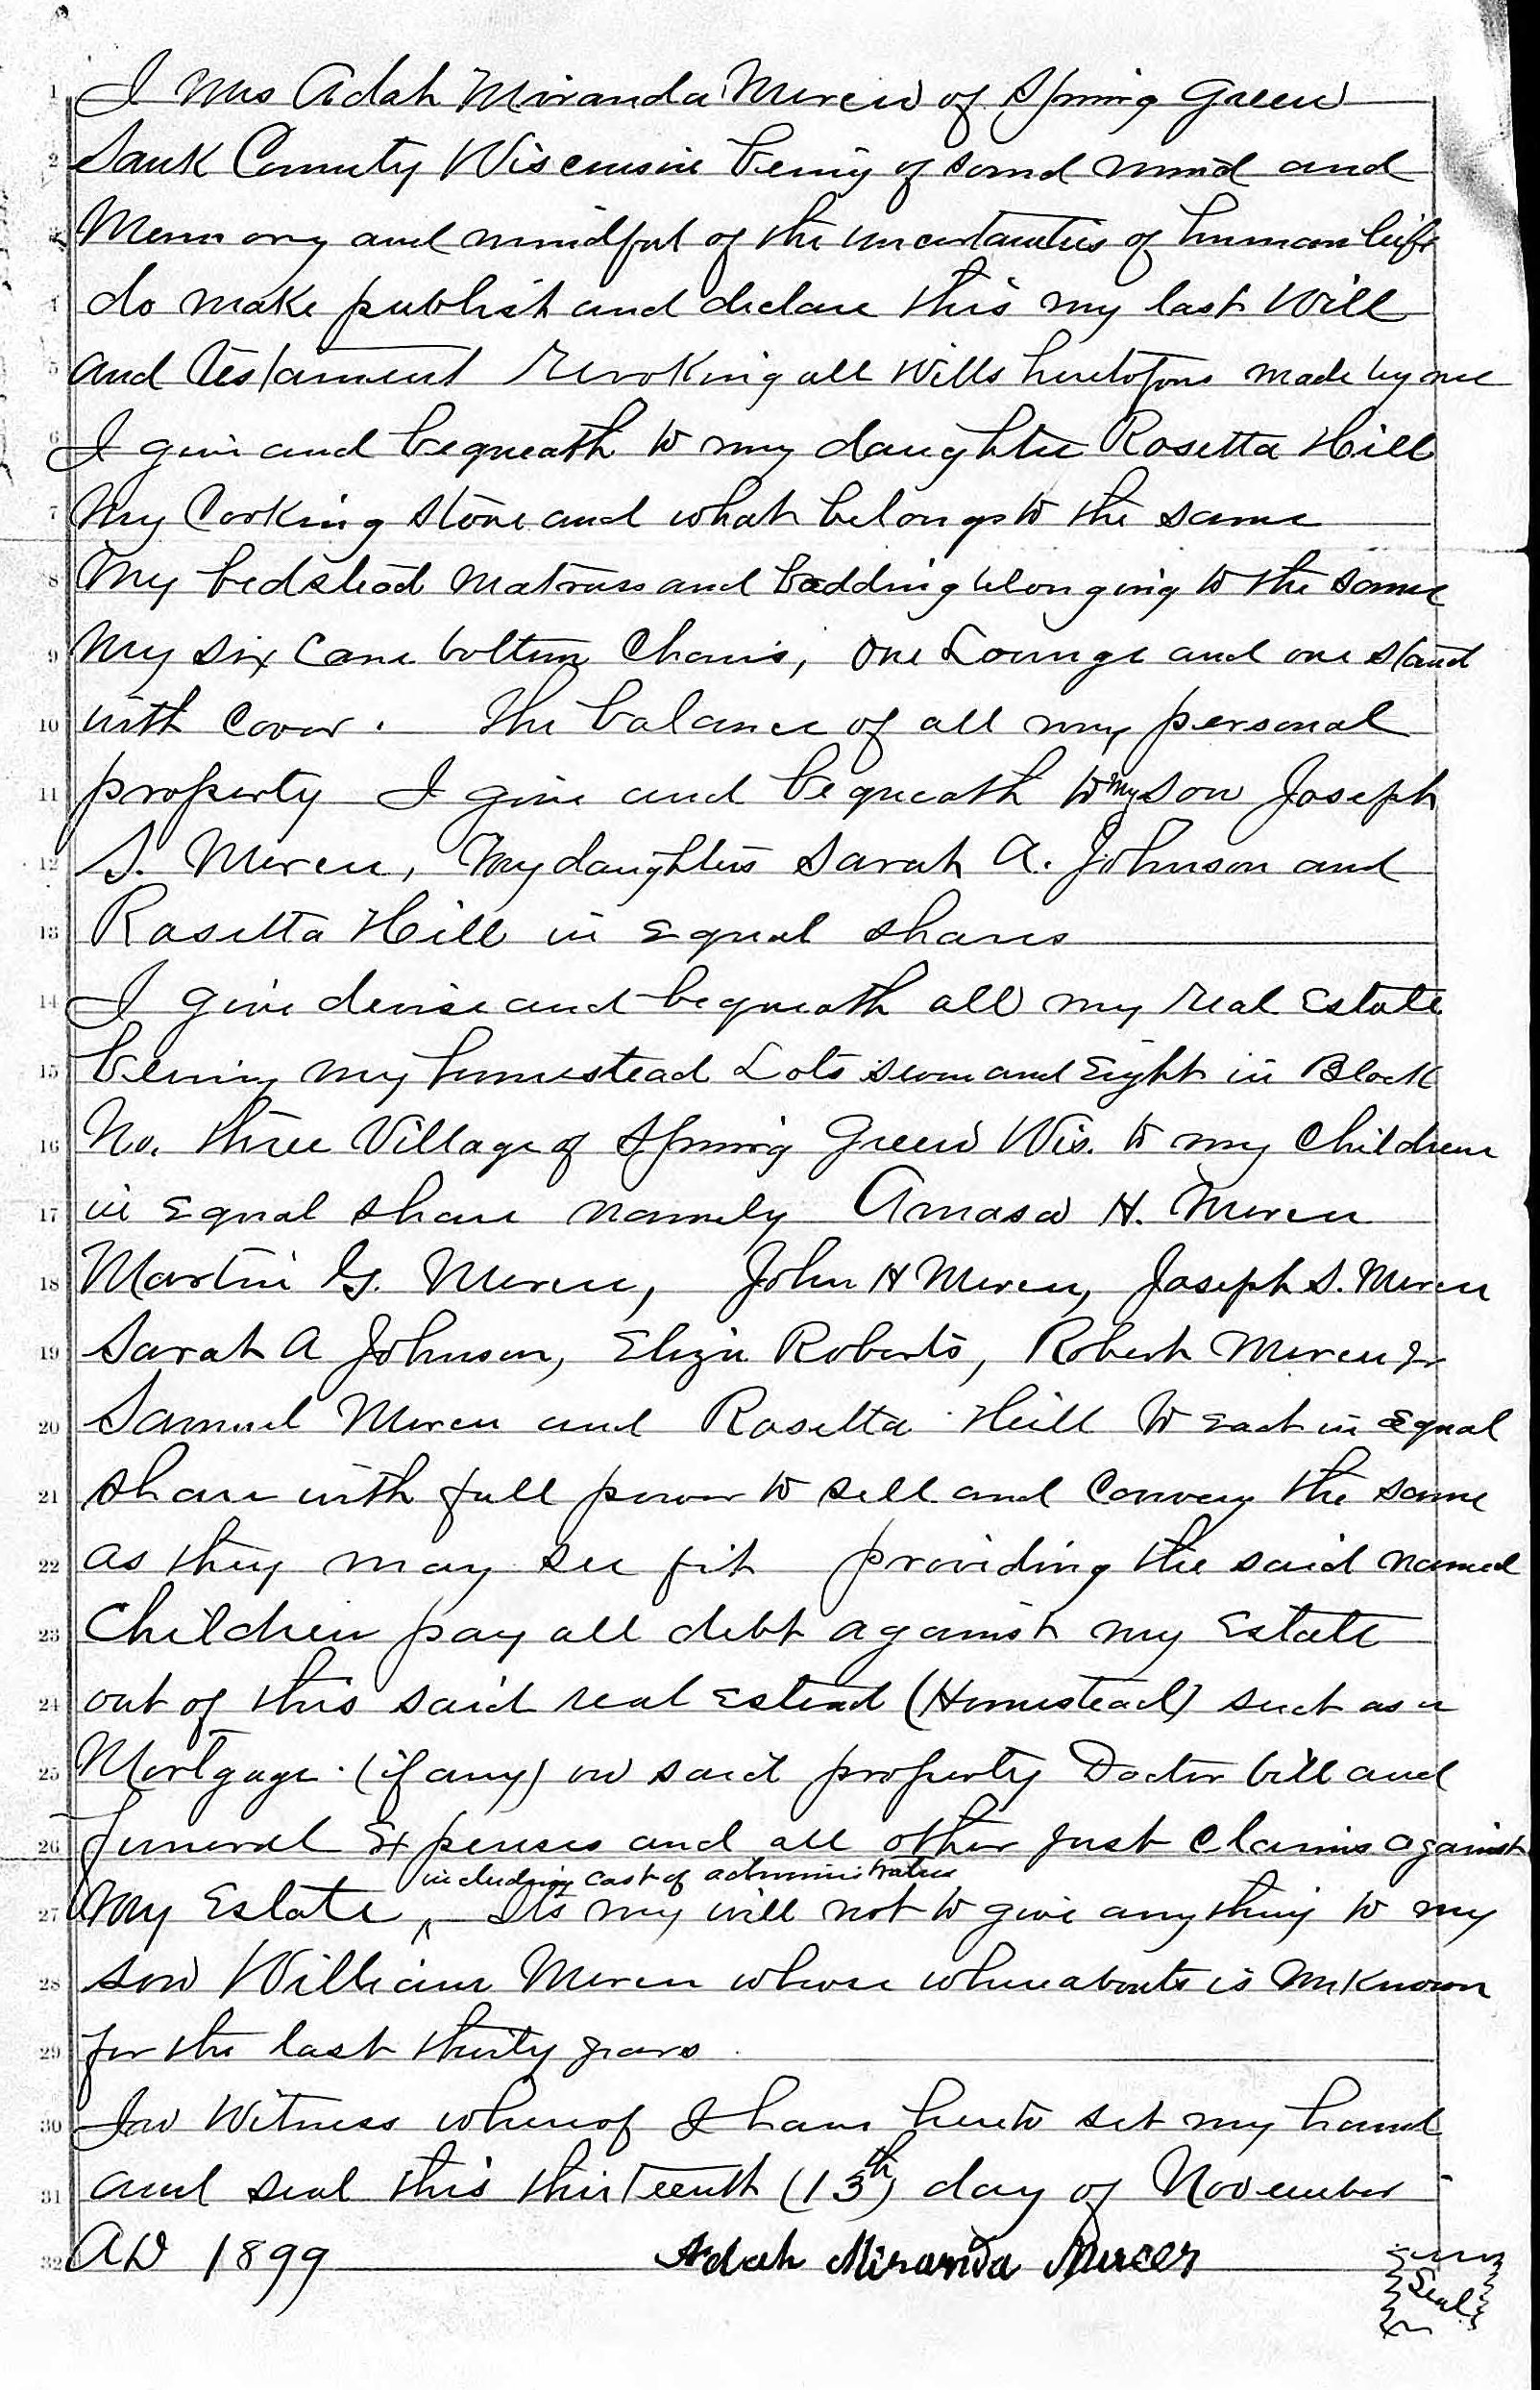 I Mrs Adah Miranda Mercer of Spring Green
Sauk County Wisconsin being of sound mind and
Memory and mindful of the uncertainties of human life
do make publish and declare this my last Will
and Testament revoking all Wills heretofore made by me
I give and bequeath to my daughter Rosetta Hill
My Cooking stove and what belongs to the same
My bedstead Matrass and bedding belonging to the same
My six Cane bottom Chairs, One Lounge and one stand
with Cover. The balance of all my personal
property I give and bequeath to my son Joseph
S. Mercer, My daughters Sarah A. Johnson and
Rosetta Hill in Equal shares
I give devise and bequeath all my real Estate
being my homestead Lots seven and Eight in Block
No. three Village of Spring Green Wis. to my Children
in Equal share namely Amasa H. Mercer
Martin G. Mercer, John H Mercer, Joseph S. Mercer
Sarah A Johnson, Eliza Roberts, Robert Mercer Jr
Samuel Mercer and Rosetta Hill to each in Equal
share with full power to sell and Convey the same
as they may see fit providing the said named
Children pay all debt against my Estate
out of this said real Estead (Homestead) such as a
Mortgage (if any) on said property Doctor bill and
funeral Expenses and all other just claims against
including cost of administration
My Estate, Its my will not to give anything to my
son William Mercer whose whereabouts is unknown
for the last thirty years
In Witness whereof I have hereto set my hand
and seal this thirteenth (13th) day of November
AD 1899 Adah Miranda Mercer
Seal